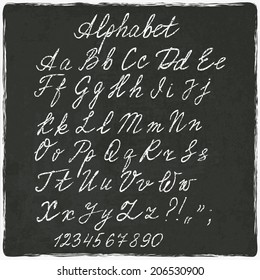 Alphabet
Aa Bb Cc Dd Ee
Ff Gg Hh Ii Jj
Kk Ll Mm Nn
Oo Pp Qq Rr Ss
Tt Uu Vv Ww
Xx Yy Zz ?! „ ";
1234567890
shutterstock.com · 206530900